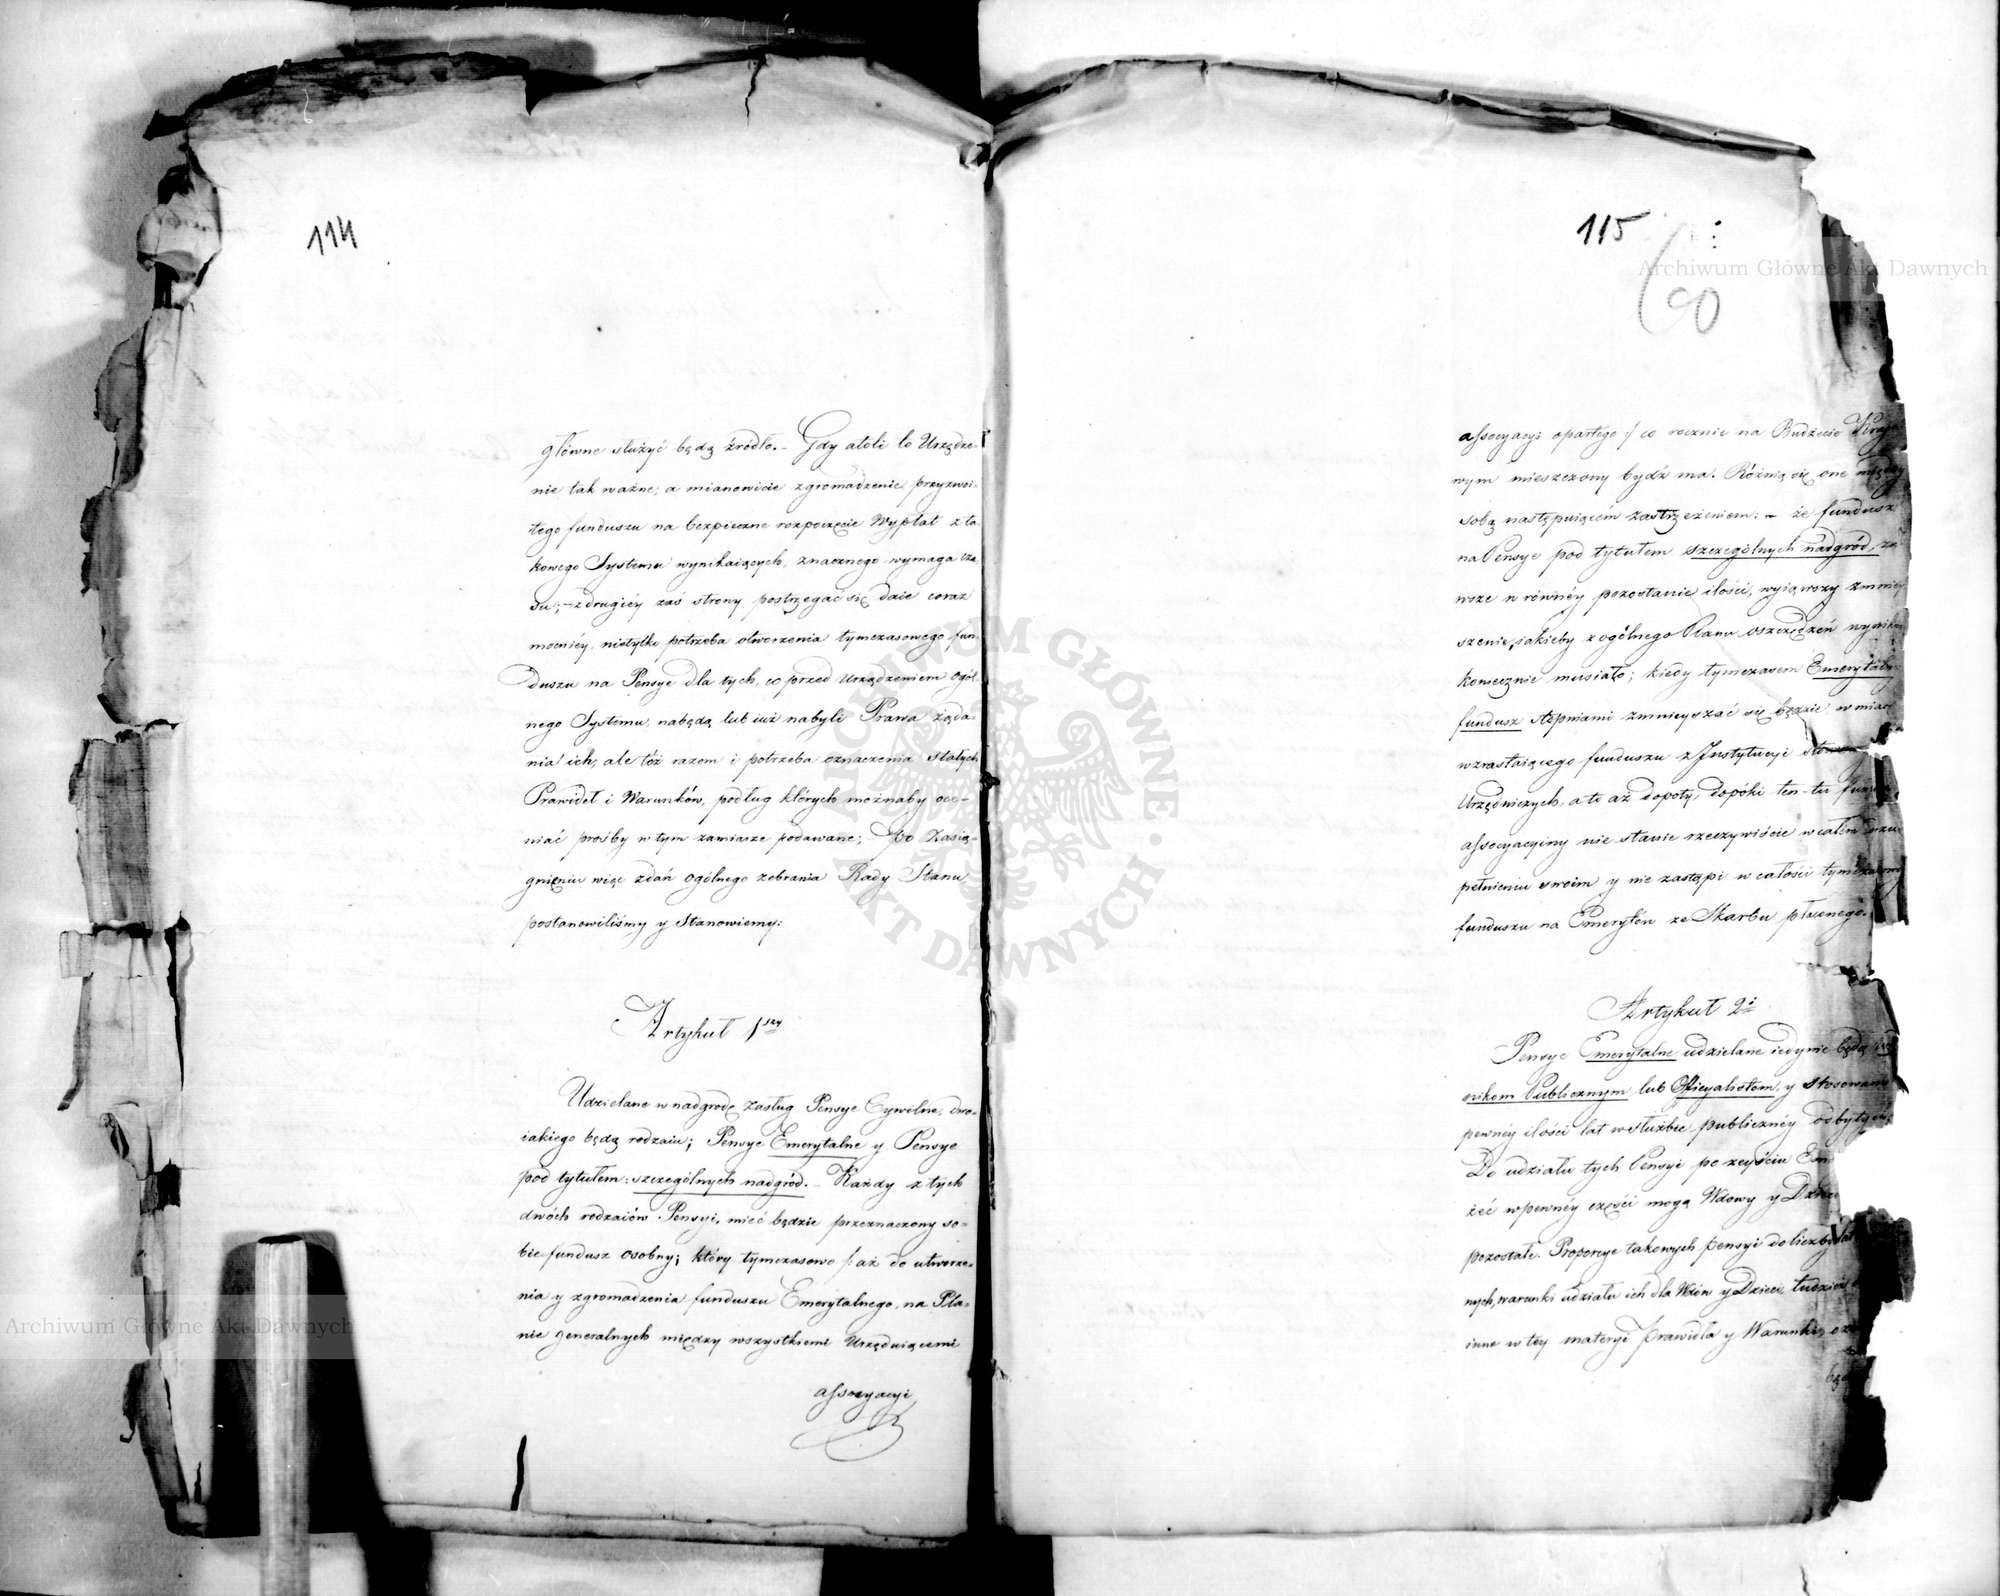 114
główne służyć będą źródło. – Gdy atoli to Urządze-
nie tak ważne; a mianowicie zgromadzenie przyzwoi-
tego funduszu na bezpieczne rozpoczęcie Wypłat z ta-
kowego Systemu wynikaiących, znacznego wymaga cza-
su; – z drugiéy zaś strony postrzegać się daie coraz
mocniéy, nietylko potrzeba otworzenia tymczasowego fun-
duszu na Pensye dla tych, co przed Urządzeniem ogól-
nego Systemu, nabędą lub iuż nabyli Prawa żąda-
nia ich, ale téż razem i potrzeba oznaczenia stałych
Prawideł i Warunków, podług których możnaby oce-
niać prośby w tym zamiarze podawane; – Po Zasią-
gnięniu więc zdań ogólnego zebrania Rady Stanu
postanowiliśmy y Stanowiemy:
Artykuł 1szy
Udzielane w nadgrodę zasług Pensye Cywilne, dwo-
iakiego będą rodzaiu; Pensye Emerytalne y Pensye
pod tytułem: szczególnych nadgród. – Każdy z tych
dwóch rodzaiów Pensyi, mieć będzie przeznaczony so-
bie fundusz osobny; który tymczasowo /: aż do utworze-
nia y zgromadzenia funduszu Emerytalnego, na Pla-
nie generalnych między wszystkiemi Urzęduiącemi
assocyacyi
115
60
assocyacyi opartego :/ co rocznie na Budżecie
wym mieszczony bydź ma. Różnią się one między
sobą następuiącém zastrzeżeniem: – że fundusz
na Pensye pod tytułem szczególnych nadgród, za
wsze w równéy pozostanie ilości, wyiąwszy zmniey
szenie, iakieby z ogólnego Planu oszczędzeń wynikać
koniecznie musiało; kiedy tymczasem Emerytalny
fundusz stopniami zmnieyszać się będzie w miarę
wzrastaiącego funduszu z Instytucyi
Urzędniczych, a to aż dopoty, dopóki ten-tu
assocyacyiny nie stanie rzeczywiście w całém uzu
pełnieniu swoim y nie zastąpi w całości tymczasowego
funduszu na Emerytów ze Skarbu płaconego.
Artykuł 2i
Pensye Emerytalne udzielane iedynie będą
nikom Publicznym lub Officyalistom, y stosowane
pewnéy ilości lat w służbie publicznéy odbytych.
Do udziału tych Pensyi po zeyściu
żeć w pewnéy części mogą Wdowy y Dzieci
pozostałe. Proporcye takowych pensyi do liczby lat
nych, warunki udziału ich dla Wdów y Dzieci, tudzież
inne w téy materyi prawidła y Warunki,